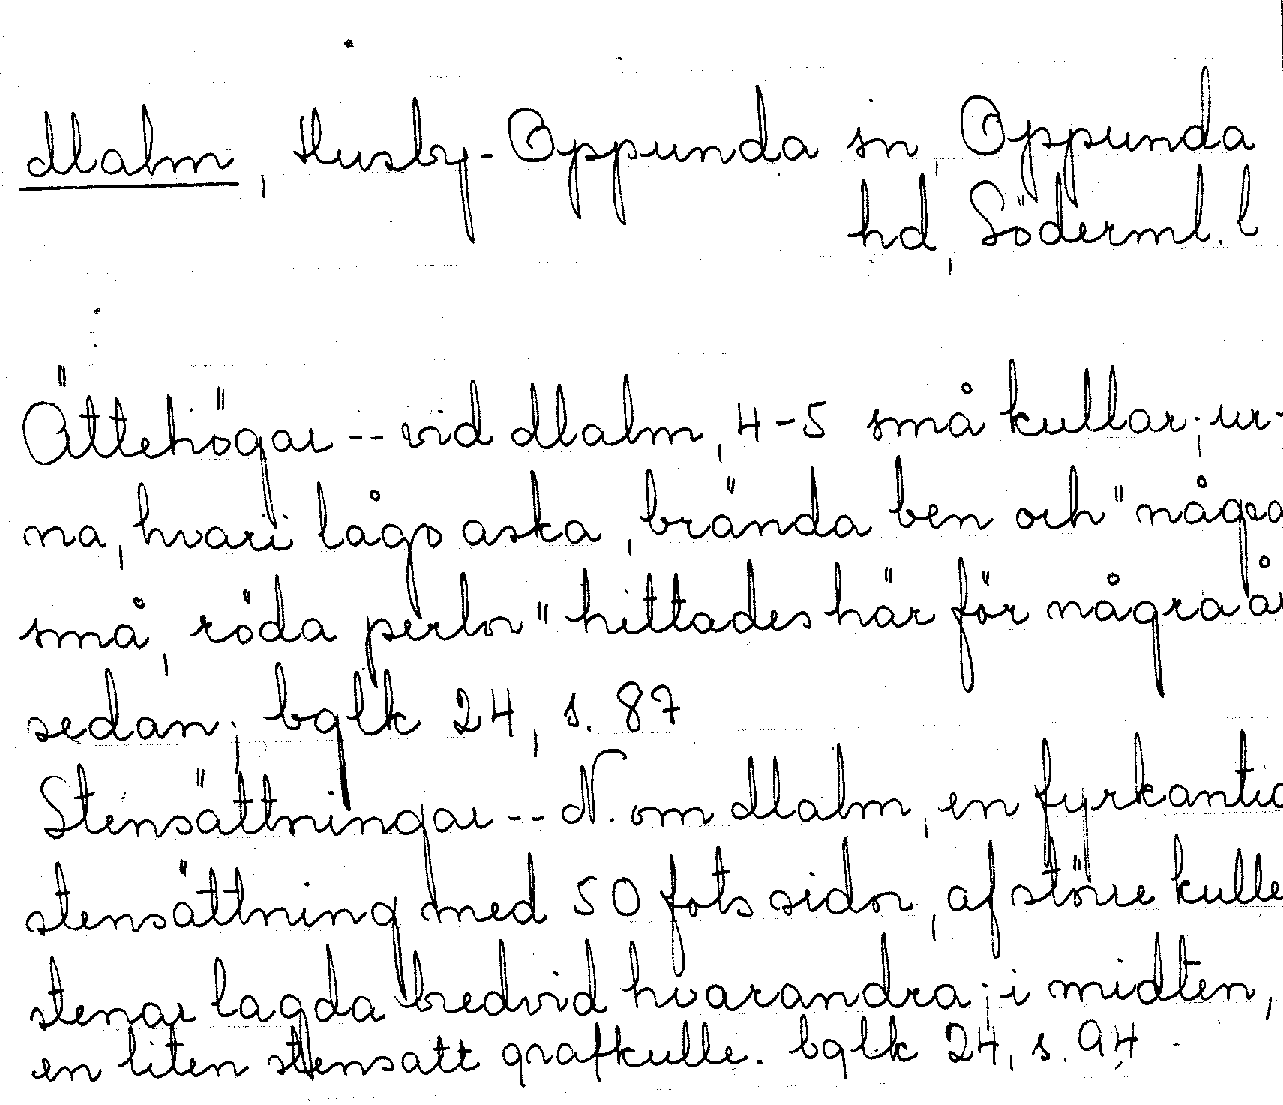 Malm, Husby-Oppunda sn, Oppunda
hd, Söderml. l
Ättehögar -- vid Malm, 4-5 små kullar; ur-
na, hvari lågo aska, brända ben och "några
små, röda perlor" hittades här för några år
sedan; bglk 24, s. 87
Stensättningar -- N. om Malm, en fyrkantig
stensättning med 50 fots sidor, af större kulle
stenar lagda bredvid hvarandra; i midten,
en liten stensatt grafkulle. bglk 24, s. 94.